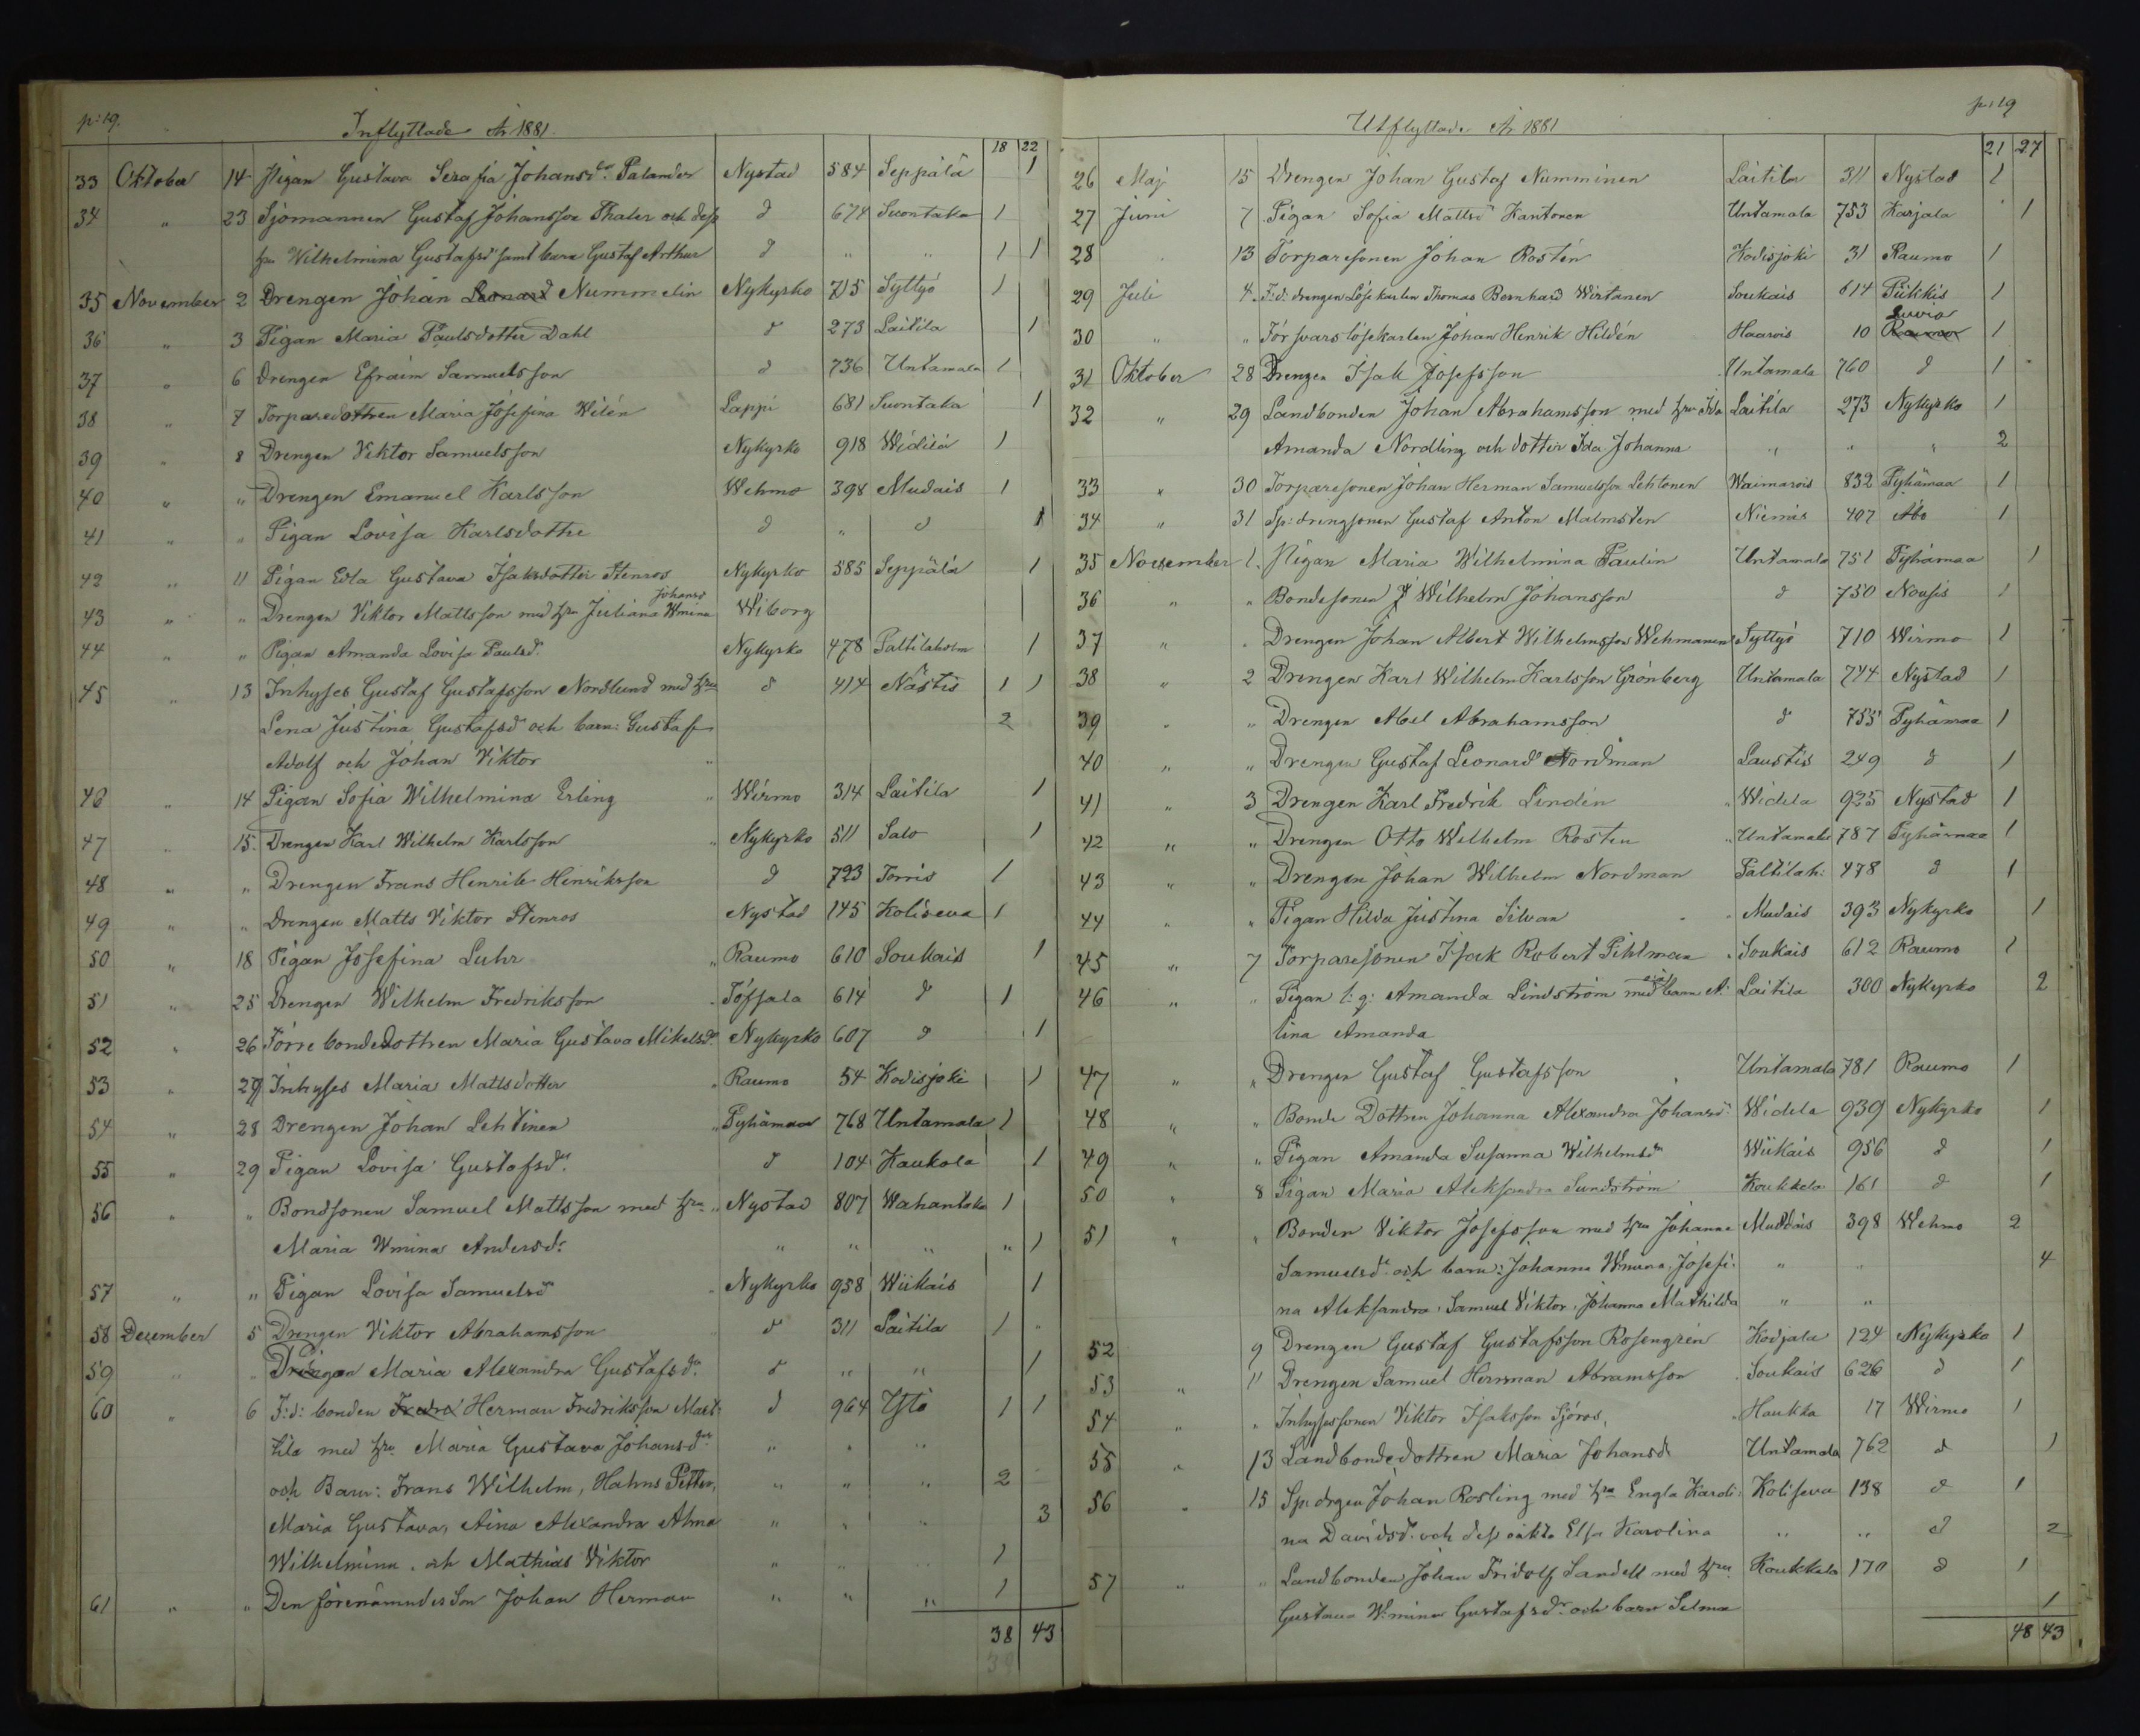 p: 19.
Inflyttade År 1881.
18 22
33 Oktober 14 Pigan Gustava Serafia Johansdr Palander Nystad 584 Seppälä 1
34 " 23 Sjömannen Gustaf Johansson Thaler och dess d 674 Suontaka 1
hru Wilhelmina Gustafsdr samt barn Gustaf Arthur d " " 1 1
35 November 2 Drengen Johan Leonard Nummelin Nykyrko 715 Syttyö 1
36 " 3 Pigan Maria Paulsdotter Dahl d 273 Laitila 1
37 " 6 Drengen Efraim Samuelsson d 736 Untamala 1
38 " 7 Torparedottren Maria Josefina Wilén Lappi 681 Suontaka 1
39 " 8 Drengen Viktor Samuelsson Nykyrko 918 Widilä 1
40 " " Drengen Emanuel Karlsson Wehmo 398 Mudais 1
41 " " Pigan Lovisa Karlsdotter d " d 1
42 " 11 Pigan Edla Gustava Isaksdotter Stenros Nykyrko 585 Seppälä 1
Johansd
43 " " Drengen Viktor Mattsson med hru Juliana Wmina Wiborg
44 " " Pigan Amanda Lovisa Paulsd. Nykyrko 478 Paltilaholm 1
45 " 13 Inhyses Gustaf Gustafsson Nordlund med hru d 414 Nästis 1 1
Lena Justina Gustafsdr och barn: Gustaf 2
Adolf och Johan Viktor "
46 " 14 Pigan Sofia Wilhelmina Erling " Wirmo 314 Laitila 1
47 " 15. Drengen Karl Wilhelm Karlsson " Nykyrko 511 Salo 1
48 " " Drengen Frans Henrik Henriksson d 723 Torris 1
49 " " Drengen Matts Viktor Stenros Nystad 145 Koliseva 1
50 " 18 Pigan Josefina Luhr " Raumo 610 Soukais 1
51 " 25 Drengen Wilhelm Fredriksson Töfsala 614 d 1
52 " 26 Förre bondedottren Maria Gustava Mikelsdr Nykyrko 607 d 1
53 " 27 Inhyses Maria Mattsdotter " Raumo 54 Kodisjoki 1
54 " 28 Drengen Johan Lehtinen " Pyhämaa 768 Untamala 1
55 " 29 Pigan Lovisa Gustafsdr d 104 Kaukola 1
56 " " Bondsonen Samuel Mattsson med hru " Nystad 807 Wahantaka 1
Maria Wmina Andersdr " " " " 1
57 " " Pigan Lovisa Samuelsdr Nykyrko 958 Wiikais 1
58 December 5 Drengen Viktor Abrahamsson d 311 Laitila 1
59 " " Pigan Maria Alexandra Gustafsdr d " " 1
60 " 6 F:d: bonden Fredri Herman Fredriksson Mart- d 964 Ytlö 1 1
tila med hru Maria Gustava Johansdr " " "
och Barn: Frans Wilhelm, Hahns Petter, " " " 2
Maria Gustava, Aina Alexandra Alma " " " 3
Wilhelmina, och Mathias Viktor " " " 1
61 " " Den förenämndes Son Johan Herman " " " 1
38 43
39
p: 19
Utflyttade År 1881
21 27
26 Maj 15 Drengen Johan Gustaf Numminen Laitila 311 Nystad 1
27 Juni 7 Pigan Sofia Mattsdr Kantonen Untamala 753 Karjala 1
28 13 Torparesonen Johan Rostén Kodisjoki 31 Raumo 1
29 Juli 4. F:d: drengen Lösekarlen Thomas Bernhard Wirtanen Soukais 614 Piikkis 1
Luvia
30 " " Försvarslösekarlen Johan Henrik Hildén Haarois 10 Raumo 1
31 Oktober 28 Drengen Isak Josefsson Untamala 760 d 1
32 " 29 Landbonden Johan Abrahamsson med hru Ida Laitila 273 Nykyrko 1
Amanda Nordling och dotter Ida Johanna " " " 2
33 " 30 Torparesonen Johan Herman Samuelsson Lehtonen Waimarois 832 Pyhämaa 1
34 " 31 Sp: drengsonen Gustaf Anton Malmsten Niemis 407 Åbo 1
35 November 1. Pigan Maria Wilhelmina Paulin Untamala 751 Pyhämaa 1
36 " " Bondesonen J Wilhelm Johansson d 750 Nousis 1
37 " " Drengen Johan Albert Wilhelmsson Wehmanen Syttyö 710 Wirmo 1
38 " 2 Drengen Karl Wilhelm Karlsson Grönberg Untamala 744 Nystad 1
39 " " Drengen Abel Abrahamsson d 755 Pyhämaa 1
40 " " Drengen Gustaf Leonard Nordman Laustis 249 d 1
41 " 3 Drengen Karl Fredrik Lindén " Widila 925 Nystad 1
42 " " Drengen Otto Wilhelm Rosten " Untamala 787 Pyhämaa 1
43 " " Drengen Johan Wilhelm Nordman Paltilah: 478 d 1
44 " " Pigan Hilda Justina Silvan Mudais 393 Nykyrko 1
45 " 7 Torparesonen Isak Robert Pihlman Soukais 612 Raumo 1
46 " " Pigan l: g: Amanda Lindström med barn A: Laitila 300 Nykyrko 2
lina Amanda
47 " " Drengen Gustaf Gustafsson Untamala 781 Raumo 1
48 " " Bonde Dottren Johanna Alexandra Johansdr Widila 939 Nykyrko 1
49 " " Pigan Amanda Susanna Wilhelmsdr Wiikais 956 d 1
50 " 8 Pigan Maria Aleksandra Sundström Koukkela 161 d 1
51 " " Bonden Viktor Josefsson med hru Johanna Mudais 398 Wehmo 2
Samuelsdr och barn: Johanna Wmina, Josefi- " " 4
na Aleksandra, Samuel Viktor, Johanna Mathilda " "
52 9 Drengen Gustaf Gustafsson Rosengrén Kodjala 124 Nykyrko 1
53 " 11 Drengen Samuel Herman Abramsson Soukais 626 d 1
54 " " Inhysessonen Viktor Isaksson Sjöros, " Haukka 17 Wirmo 1
55 " 13 Landbondedottren Maria Johansdr Untamala 762 d 1
56 " 15 Sp: drgen Johan Rosling med hru Engla Karoli- Koliseva 138 d 1
na Davidsdr och dess oäkta Elsa Karolina " " d 2
57 " " Landbonden Johan Fridolf Sandell med hru Koukkela 170 d 1
Gustava Wmina Gustafsdr och barn Selma 1
48 43